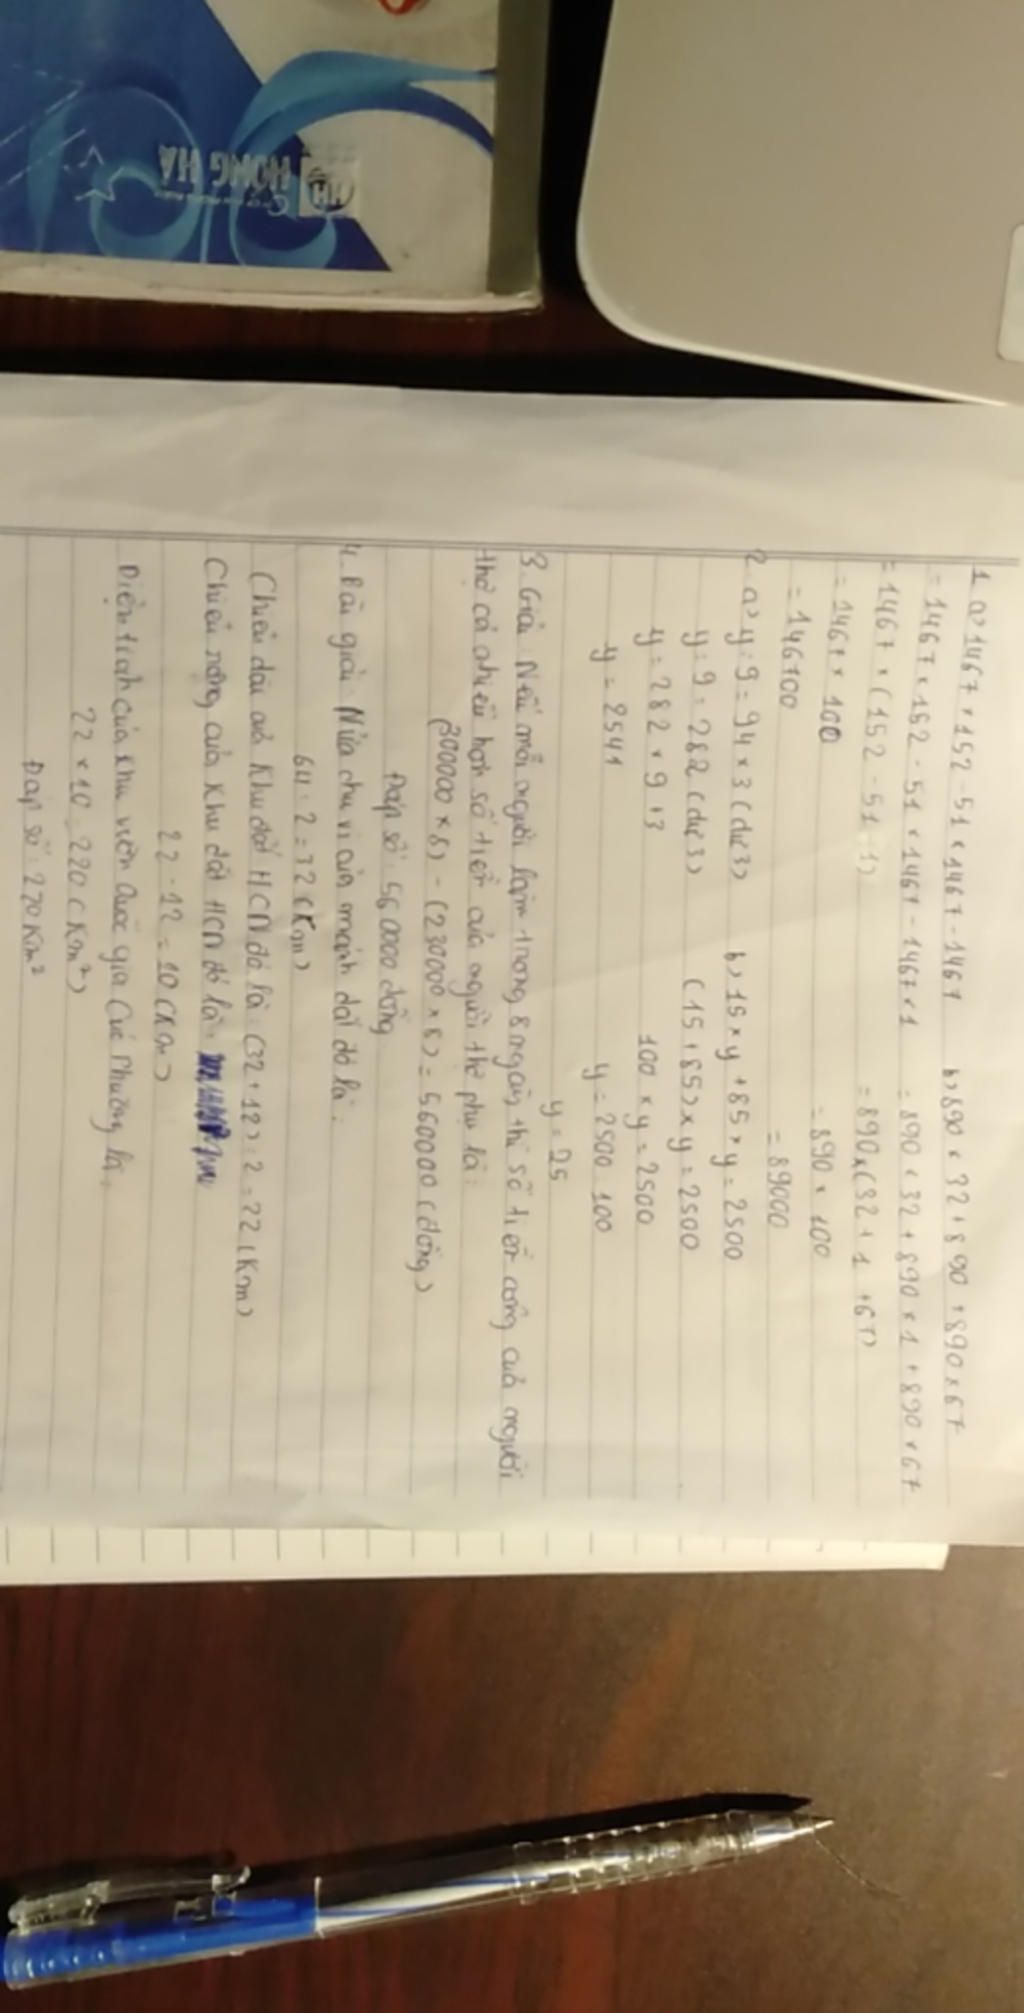 HỒNG HÀ
1. a) 1467 × 152 - 51 × 1467 - 1467
= 1467 × 152 - 51 × 1467 - 1467 × 1
= 1467 × (152 - 51 - 1)
= 1467 × 100
= 146700
b) 890 × 32 + 890 + 890 × 67
= 890 × 32 + 890 × 1 + 890 × 67
= 890 × (32 + 1 + 67)
= 890 × 100
= 89000
2. a) y : 9 = 94 × 3 (dư 3)
y : 9 = 282 (dư 3)
y = 282 × 9 + 3
y = 2541
b) 15 × y + 85 × y = 2500
(15 + 85) × y = 2500
100 × y = 2500
y = 2500 : 100
y = 25
3. Giải: Nếu mỗi người làm trong 8 ngày thì số tiền công của người
thợ cả nhiều hơn số tiền của người thợ phụ là:
(300000 × 8) - (230000 × 8) = 560000 (đồng)
Đáp số: 560000 đồng
4. Bài giải: Nửa chu vi của mảnh đất đó là:
64 : 2 = 32 (Km)
Chiều dài của khu đất HCN đó là: (32 + 12) : 2 = 22 (Km)
Chiều rộng của khu đất HCN đó là:
22 - 12 = 10 (Km)
Diện tích của khu vườn Quốc gia Cúc Phương là:
22 × 10 = 220 (Km²)
Đáp số: 220 Km²